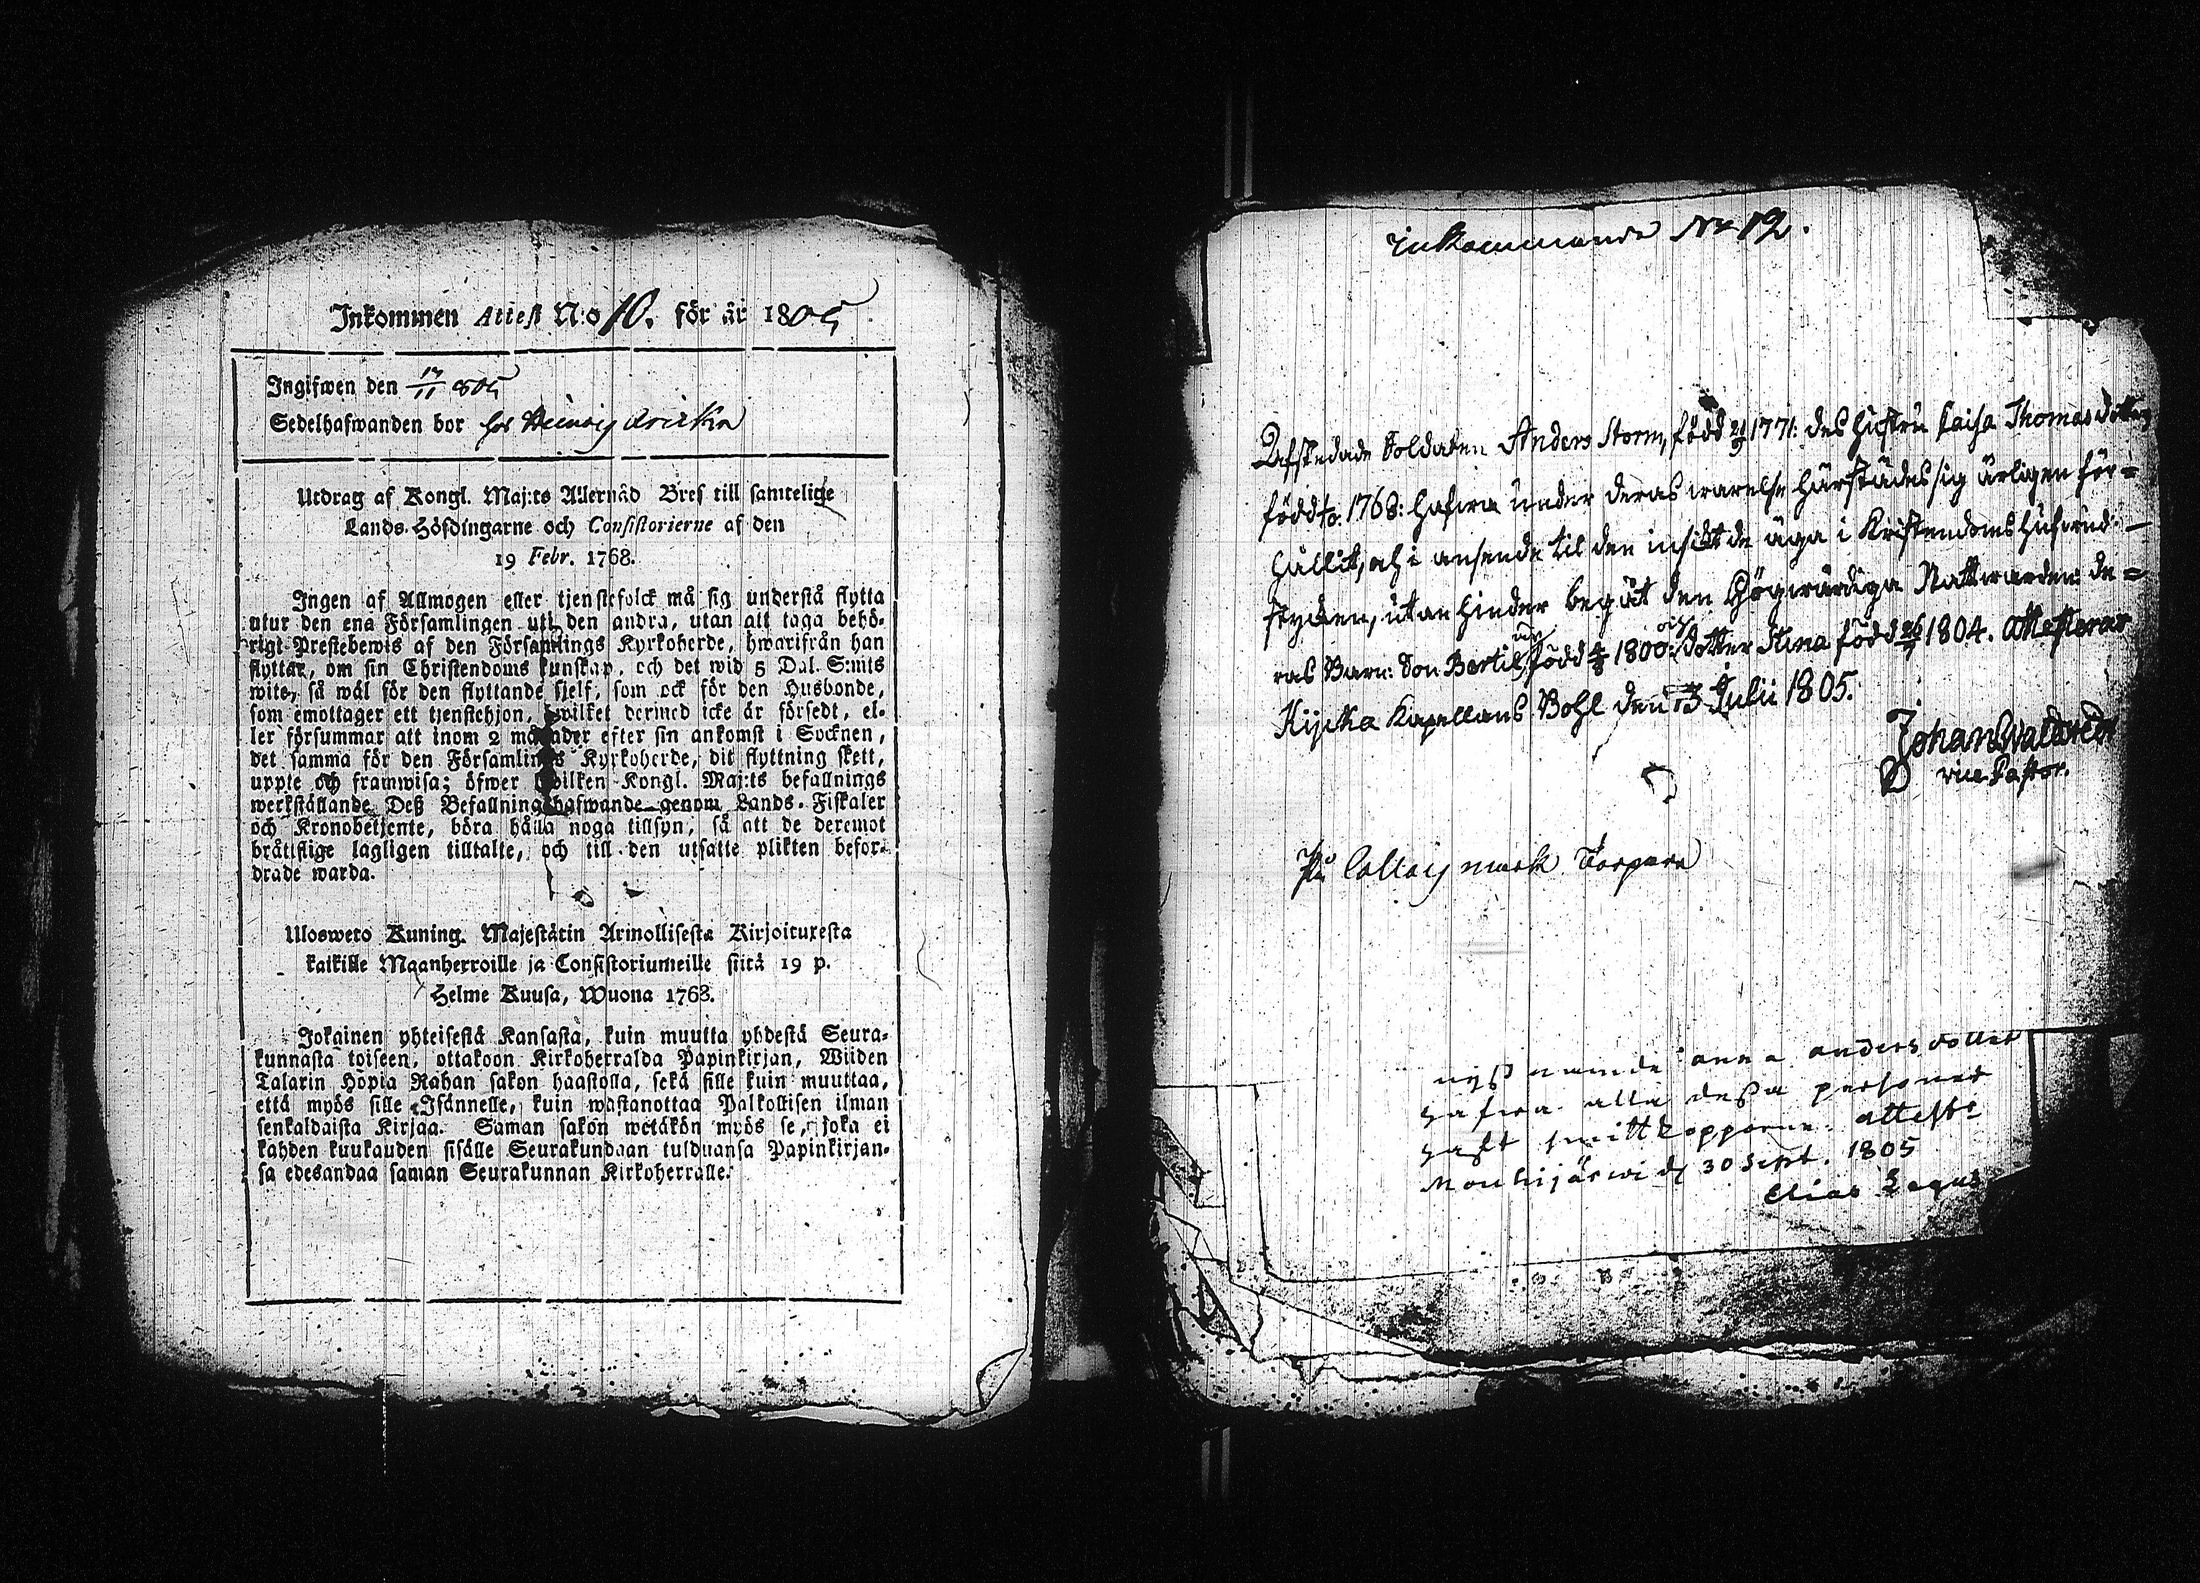 Inkommen Attest N:o 10. för år 1805
Ingifwen den 17/11 805
Sedelhafwanden bor hos
Utdrag af Kongl. Maj:ts Allernåd Bref till samtelige
Lands-Höfdingarne och Consistorierne af den
19 Febr. 1768.
Ingen af Allmogen eller tjenstefolck må sig understå flytta
utur den ena Församlingen uti den andra, utan att taga behö-
rigt Prestebewis af den Församlings Kyrkoherde, hwarifrån han
flyttar, om sin Christendoms kunskap, och det wid 5 Dal. S:mts
wite, så wäl för den flyttande sjelf, som ock för den Husbonde,
som emottager ett tjenstehjon, hwilket dermed icke är försedt, el-
ler försummar att inom 2 månader efter sin ankomst i Socknen,
det samma för den Församlings Kyrkoherde, dit flyttning skett,
uppte och framwisa; öfwer hwilken Kongl. Maj:ts befallnings
werkställande Deß Befallningshafwande genom Lands-Fiskaler
och Kronobetjente, böra hålla noga tillsyn, så att de deremot
bråttslige lagligen tilltalte, och till den utsatte plikten befor-
drade warda.
Ulosweto Kuning. Majestätin Armollisesta Kirjoituxesta
kaikille Maanherroille ja Consistoriumeille siitä 19 p.
Helme Kuusa, Wuona 1768.
Jokainen yhteisestä Kansasta, kuin muutta yhdestä Seura-
kunnasta toiseen, ottakoon Kirkoherralda Papinkirjan, Wiiden
Talarin Hopia Rahan sakon haastolla, sekä sille kuin muuttaa,
että myös sille Isännelle, kuin wastanottaa Palkollisen ilman
senkaldaista Kirjaa. Saman sakon wetäkön myös se, joka ei
kahden kuukauden sisälle Seurakundaan tulduansa Papinkirjan-
sa edesandaa saman Seurakunnan Kirkoherralle.
inkommande No 12.
Afskedade Soldaten Anders Storm, född 21/9 1771: des hustru Caisa Thomasdotter
född 1768: hafwa under deras warelse härstädes sig ärligen för=
hållit, och i ansende til den insikt de äga i Kristendoms hufwud-
stycken, utan hinder begåt den Högwärdiga Nattwarden: de=
ras Barn: Son Bertil född 1800: och dotter Stina född 26/7 1804. Attesterar
Kyrka Kapellans Bohl den 3 Julii 1805.
Johan
vice Pastor.
På mark Torpare
nyß nämnde anna anders dotter
hafwa alla deßa personer
haft smittkopporna. atteste
Mouhijärwi d 30 Sept. 1805
Elias Lagus